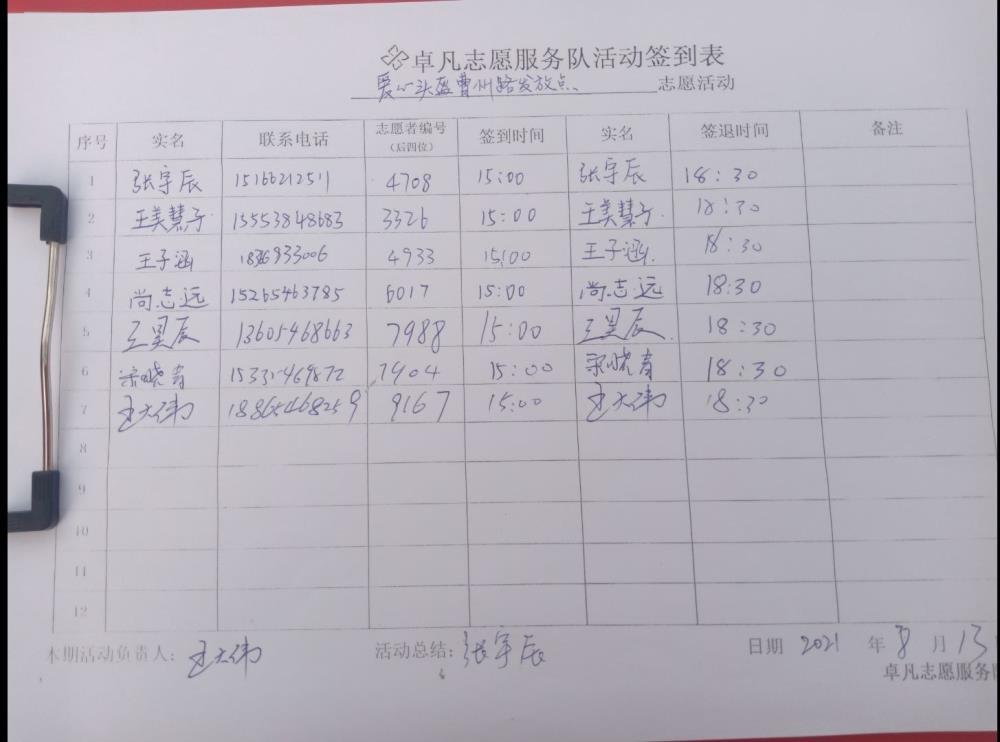 卓凡志愿服务队活动签到表
爱心头盔曹州路发放点、志愿活动
序号 实名 联系电话 志愿者编号（后四位） 签到时间 实名 签退时间 备注
1 张宇辰 15166212511 4708 15:00 张宇辰 18:30
2 王美慧子 15553848683 3326 15:00 王美慧子 18:30
3 王子涵 4933 15:00 王子涵 18:30
4 尚志远 15265463785 6017 15:00 尚志远 18:30
5 王昊辰 13605468663 7988 15:00 王昊辰 18:30
6 宋晓青 7904 15:00 宋晓青 18:30
7 王大伟 18865468259 9167 15:00 王大伟 18:30
8
9
10
11
12
本期活动负责人：王大伟 活动总结：张宇辰 日期 2021 年 8 月 13
卓凡志愿服务